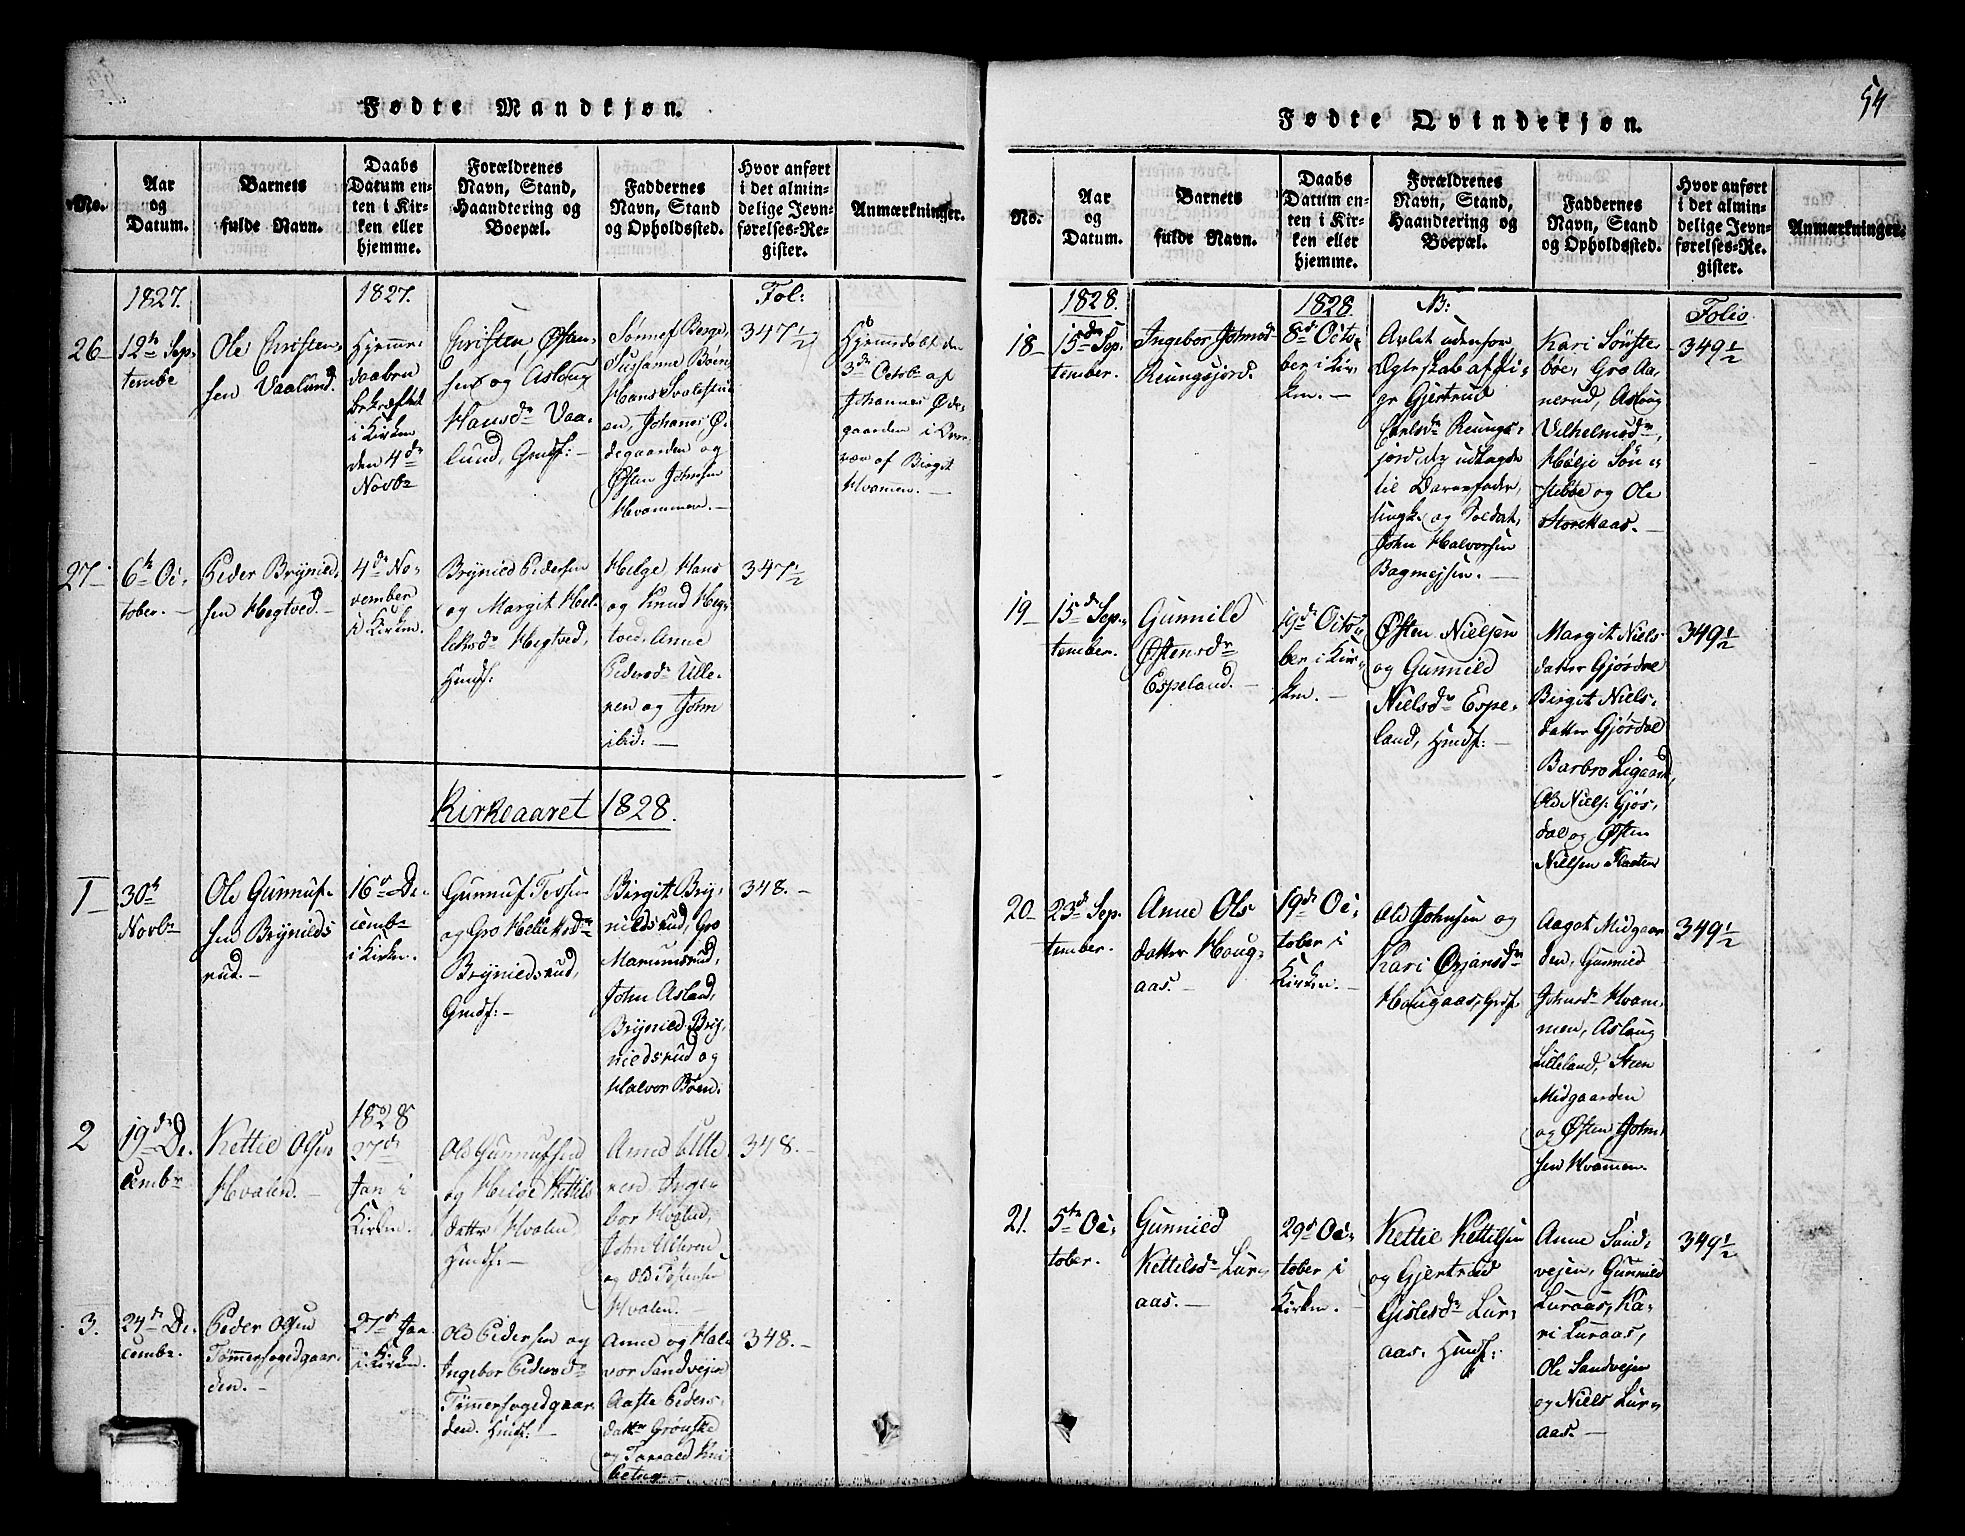 54
Fødte Mandkjøn.
No.
Aar
og
Datum.
Barnets
fulde Navn.
Daabs
Datum en-
ten i Kir-
ken eller
hjemme.
Forældrenes
Navn, Stand,
Haandtering og
Boepæl.
Faddernes
Navn, Stand
og Opholdssted.
Hvor anført
i det almin-
delige Jevn-
førelses-Re-
gister.
Anmærkninger.
1827.
1827.
Fol:
26
12te Sep-
tembe
Ole Christen-
sen Vaalund.
Hjemme-
daaben
bekræftet
i Kirken
den 4de
Novbr
Christen Østen-
sen og Aslaug
Hansdr Vaa-
lund, Gmdf:
Sønnef Berge,
Susanne Bøen,
Hans Svalestuu-
en, Johanes Ø-
degaarden og
Østen Johnsen
Hvammen.
347½
Hjemmedøbt den
3de Octobr af
Johannes Øde-
gaarden i
af Birgit
Hvamen.
27
6te Oc-
tober.
Peder Brynild-
sen Hegtved
4de No-
vember
i Kirken.
Brynild Pedersen
og Margit Hel-
leksdr Hegtved,
Hmdf:
Helge Hans
og Knud Heg-
tved, Anne
Pedersdr Ulle-
ren og John
ibid.
347½
Kirkeaaret 1828.
1
30te
Novbr
Ole Gunnuf-
sen Brynilds
rud.
16de De-
cembr
i Kirken.
Gunnuf Tovsen
og Gro Helleksdr
Brynildsrud,
Gmdf:
Birgit Bry-
nildsrud, Gro
Marumsrud,
John Asland,
Brynild Bry-
nildsrud og
Halvor Bøen.
348.
2
19de De-
cembr
Kettil Olsen
Hvalen.
1828
27de
Jan i
Kirken.
Ole Gunnufsen
og Helge Kettils
datter Hvalen
Hmdf:
Anne Ulle
ren, Inge-
bor Hvalen,
John Ulleren
og Ole Tostensen
Hvalen.
348.
3.
24de De-
cembr.
Peder Olsen
Tømmerfogedgaar-
den.
27de Jan
i Kirken.
Ole Pedersen og
Ingebor Pedersdr
Tømerfogedgaar
den. Hmdf:
Anne og Hal-
vor Sandvejen
Aaste Peders-
datter Grønske
og Torvald
348.
Fødte Qvindekjøn.
No.
Aar
og
Datum.
Barnets
fulde Navn.
Daabs
Datum en-
ten i Kir-
ken eller
hjemme.
Forældrenes
Navn, Stand,
Haandtering og
Boepæl.
Faddernes
Navn, Stand
og Opholdssted.
Hvor anført
i det almin-
delige Jevn-
førelses-Re-
gister.
Anmærkninger.
1828.
1828
NB:
Folio
18
15de Sep-
tember.
Ingebor Johnsd
Reungsjord.
8de Octo-
ber i Kir-
ken.
Avlet udenfor
Egteskab af Pi-
ge Gjertrud
Carlsdr Reungs-
jord
til Barnefader,
Ungk. og Soldat,
John Halvorsen
Bagmejsen.
Kari Sønste-
bøe, Gro Aa-
nerud, Aslaug
Vilhelmsdr,
Hølje Søn-
stebøe og Ole
Storekaas.
349½
19
15de Sep-
tember.
Gunnild
Østensdr
Espeland.
19de Octo-
ber i Kir-
ken.
Østen Nielsen
og Gunnild
Nielsdr Espe-
land, Hmdf:
Margit Niels-
datter Gjørdal
Birgit Niels-
datter Gjørdal
Barbro Ligaard,
Ole Niels: Gjør-
dal og Østen
Nielsen Flaaten
349½
20
23de Sep.
tember.
Anne Ols
datter Houg-
aas.
19de Oc-
tober i
Kirken.
Ole Johnsen og
Kari Ørjansdr
Hougaas, Gmdf.
Aagot Midgaar
den, Gunnild
Johnsdr Hvam-
men, Aslaug
Lilleland, Steen
Midgaarden
og Østen John-
sen Hvammen.
349½
21.
5te Oc-
tober.
Gunnild
Kettelsdr Lur-
aas.
29de Oc-
tober i
Kirken.
Kettil Kettilsen
og Gjertrud
Gislesdr Lur-
aas. Hmdf:
Anne Sand-
vejen, Gunnild
Luraas, Ka-
ri Luraas,
Ole Sandvejen
og Niels Lur-
aas.
349½